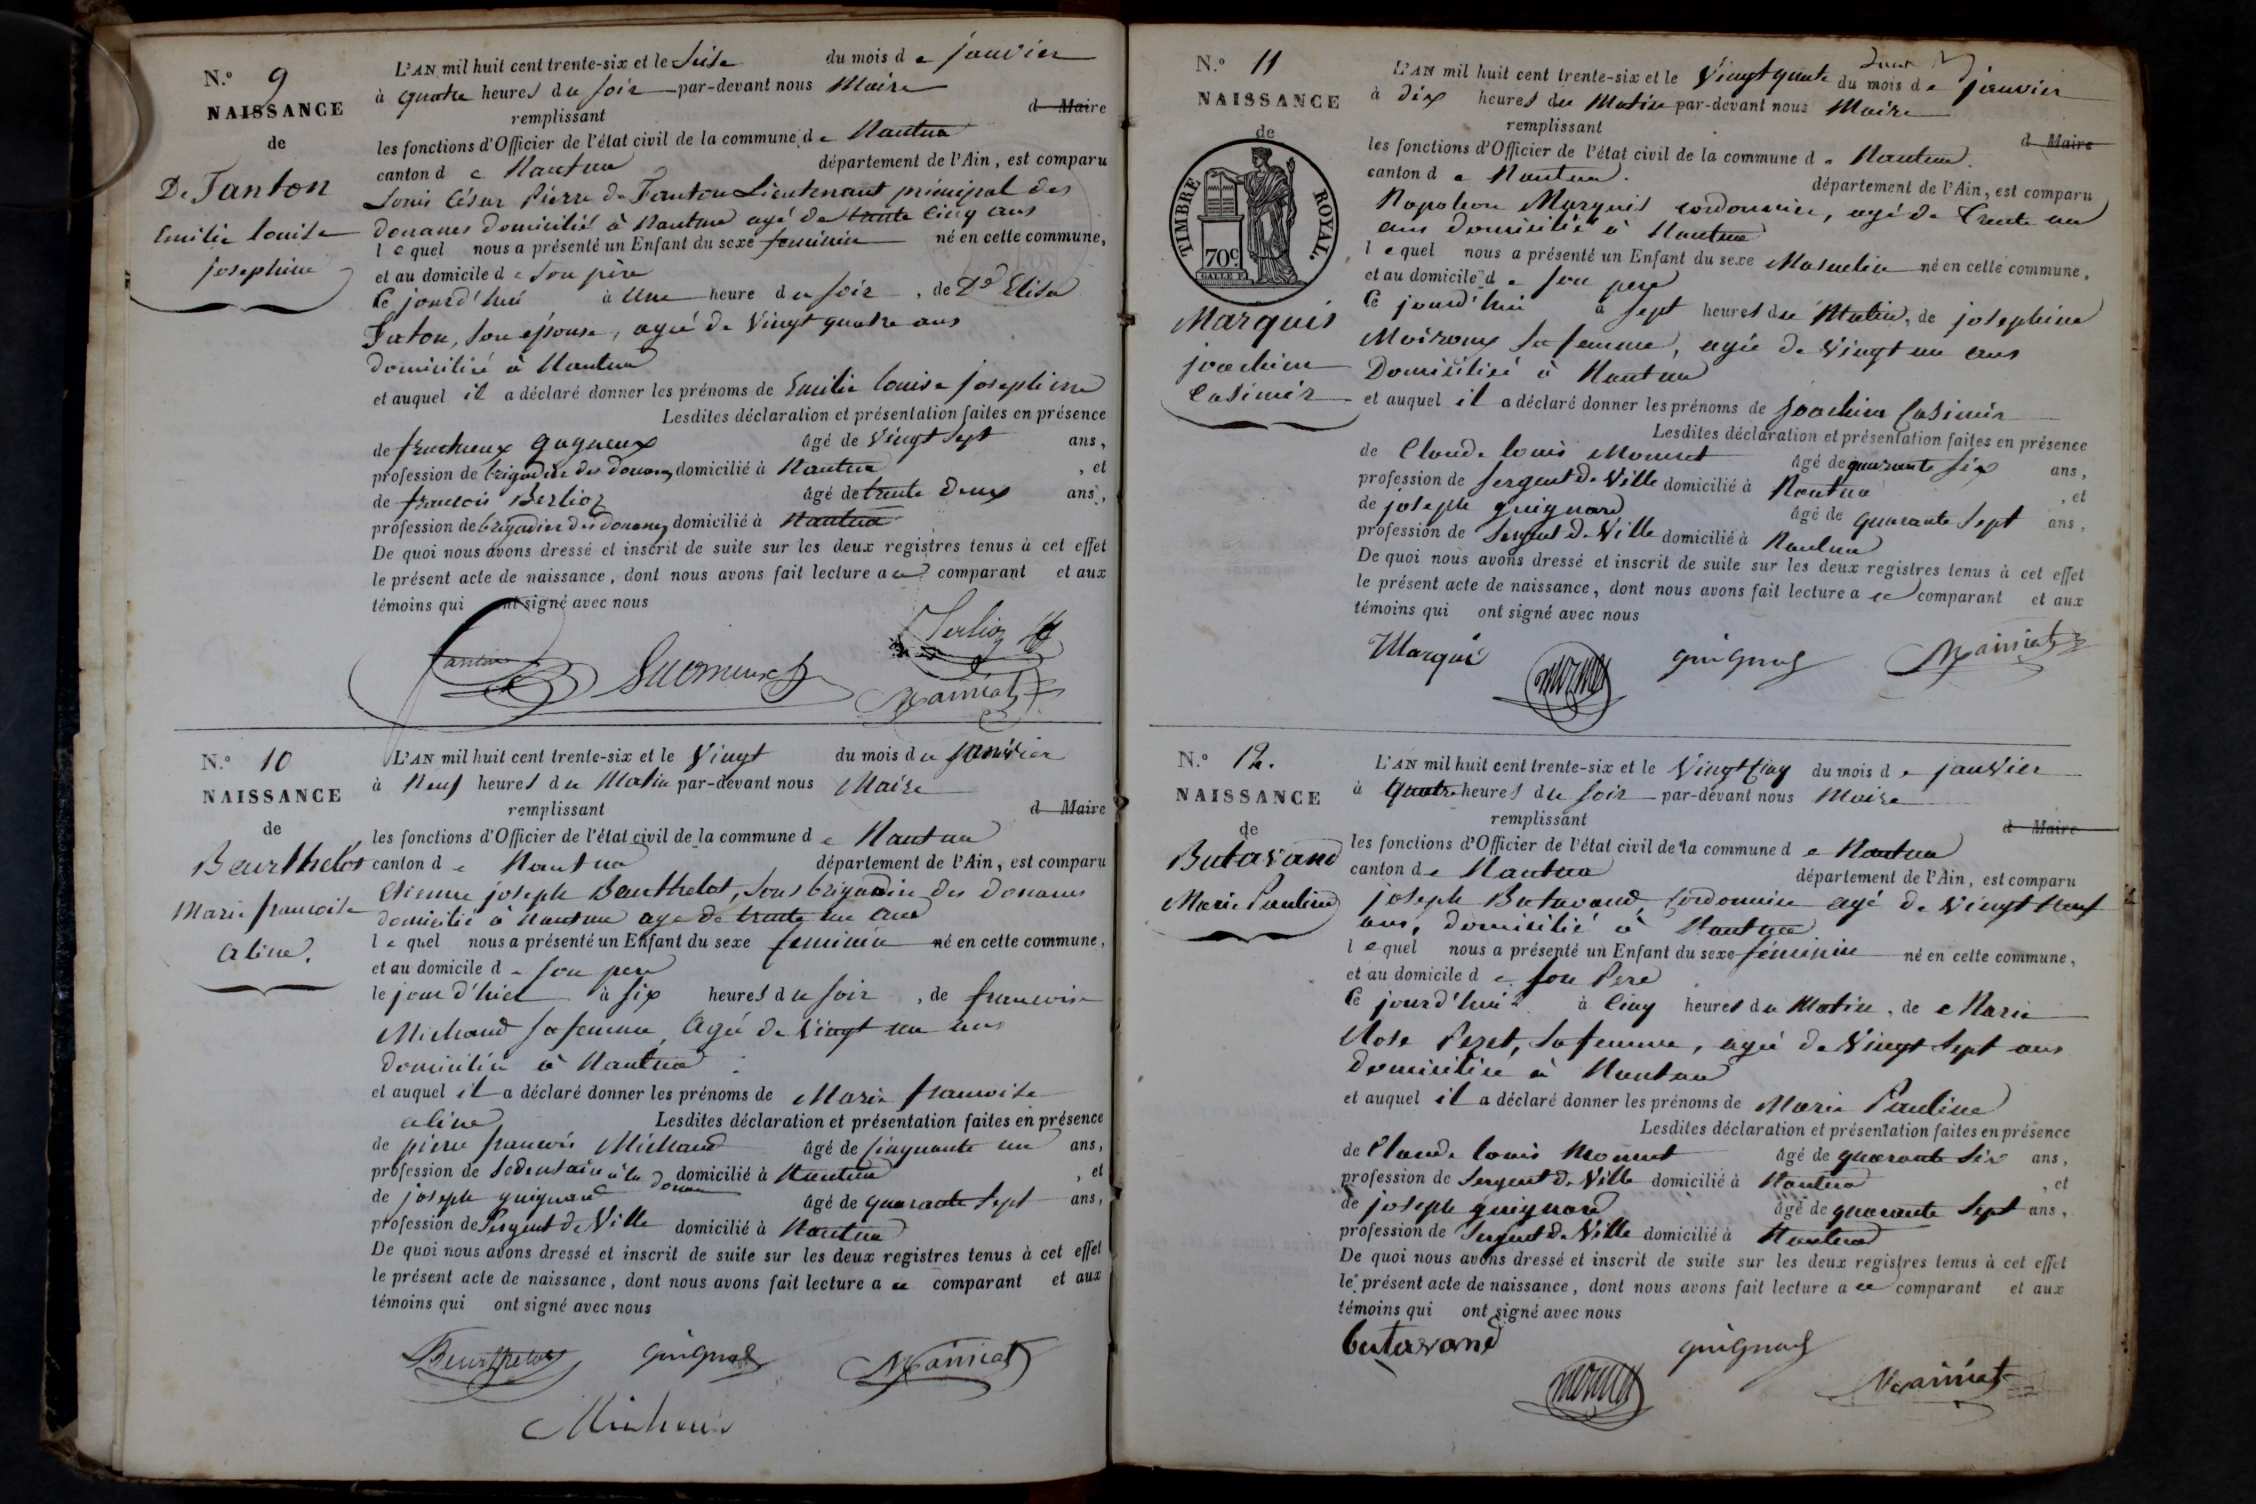 N.º 9
NAISSANCE
de
De Fanton
Emilie Louise
josephine
L'AN mil huit cent trente-six et le Seise du mois de janvier
à quatre heures du soir par-devant nous Maire
remplissant d Maire
les fonctions d'Officier de l'état civil de la commune de Nantua
canton de Nantua département de l'Ain, est comparu
Louis César Pierre de Fanton Lieutenant principal des
douanes domicilié à Nantua agé de trente cinq ans
lequel nous a présenté un Enfant du sexe feminin né en cette commune,
et au domicile de son père
Ce jourd'hui à Une heure du soir, de De Elisa
son épouse, agée de Vingt quatre ans
domiciliée à Nantua
et auquel il a déclaré donner les prénoms de Emilie Louise josephine
Lesdites déclaration et présentation faites en présence
de âgé de Vingt Sept ans,
profession de brigadier des douanes domicilié à Nantua, et
de francois Berlioz âgé de trente Deux ans,
profession de brigadier des douanes domicilié à Nantua
De quoi nous avons dressé et inscrit de suite sur les deux registres tenus à cet effet
le présent acte de naissance, dont nous avons fait lecture au comparant et aux
témoins qui ont signé avec nous
Berlioz
N.º 10
NAISSANCE
de
Beurthelot
Marie francoise
aline.
L'AN mil huit cent trente-six et le Vingt du mois de janvier
à Neuf heures du Matin par-devant nous Maire
remplissant d Maire
les fonctions d'Officier de l'état civil de la commune de Nantua
canton de Nantua département de l'Ain, est comparu
Etienne joseph Beurthelot, Sous brigadier des Douanes
domicilié à Nantua agé de trente un ans
lequel nous a présenté un Enfant du sexe feminin né en cette commune,
et au domicile de son pere
le jour d'hier à six heures du soir, de francoise
Michaud sa femme, Agée de Vingt un ans
domiciliée à Nantua
et auquel il a déclaré donner les prénoms de Marie francoise
aline Lesdites déclaration et présentation faites en présence
de pierre francois Michaud âgé de Cinquante un ans,
profession de Sedentaire à la Douane domicilié à Nantua, et
de joseph guignard âgé de quarante Sept ans,
profession de Sergent de Ville domicilié à Nantua
De quoi nous avons dressé et inscrit de suite sur les deux registres tenus à cet effet
le présent acte de naissance, dont nous avons fait lecture au comparant et aux
témoins qui ont signé avec nous
Beurthelot guignard
Michaud
N.º 11
NAISSANCE
de
TIMBRE ROYAL.
70c.
Marquis
joachim
Casimir
L'AN mil huit cent trente-six et le Vingt quatre du mois de janvier
à dix heures du Matin par-devant nous Maire
remplissant d Maire
les fonctions d'Officier de l'état civil de la commune de Nantua.
canton de Nantua. département de l'Ain, est comparu
Napoleon Marquis cordonnier, agé de trente un
ans domicilié à Nantua
lequel nous a présenté un Enfant du sexe Masculin né en cette commune,
et au domicile de son pere
Ce jourd'hui à sept heures du Matin, de josephine
sa femme, agée de Vingt un ans
Domiciliée à Nantua
et auquel il a déclaré donner les prénoms de joachim Casimir
Lesdites déclaration et présentation faites en présence
de Claude Louis âgé de quarante six ans,
profession de Sergent de Ville domicilié à Nantua, et
de joseph guignard âgé de quarante Sept ans,
profession de Sergent de Ville domicilié à Nantua
De quoi nous avons dressé et inscrit de suite sur les deux registres tenus à cet effet
le présent acte de naissance, dont nous avons fait lecture au comparant et aux
témoins qui ont signé avec nous
Marquis guignard
N.º 12.
NAISSANCE
de
Butavand
Marie Pauline
L'AN mil huit cent trente-six et le Vingt Cinq du mois de janvier
à Quatre heures du soir par-devant nous Maire
remplissant d Maire
les fonctions d'Officier de l'état civil de la commune de Nantua
canton de Nantua département de l'Ain, est comparu
joseph Butavand, Cordonnier agé de Vingt Neuf
ans, domicilié à Nantua
lequel nous a présenté un Enfant du sexe féminin né en cette commune,
et au domicile de son Pere
Ce jourd'hui à Cinq heures du Matin, de Marie
Rose Peret, sa femme, agée de Vingt Sept ans
Domiciliée à Nantua
et auquel il a déclaré donner les prénoms de Marie Pauline
Lesdites déclaration et présentation faites en présence
de Claude Louis âgé de quarante Six ans,
profession de Sergent de Ville domicilié à Nantua, et
de joseph guignard âgé de quarante Sept ans,
profession de Sergent de Ville domicilié à Nantua
De quoi nous avons dressé et inscrit de suite sur les deux registres tenus à cet effet
le présent acte de naissance, dont nous avons fait lecture au comparant et aux
témoins qui ont signé avec nous
butavand guignard